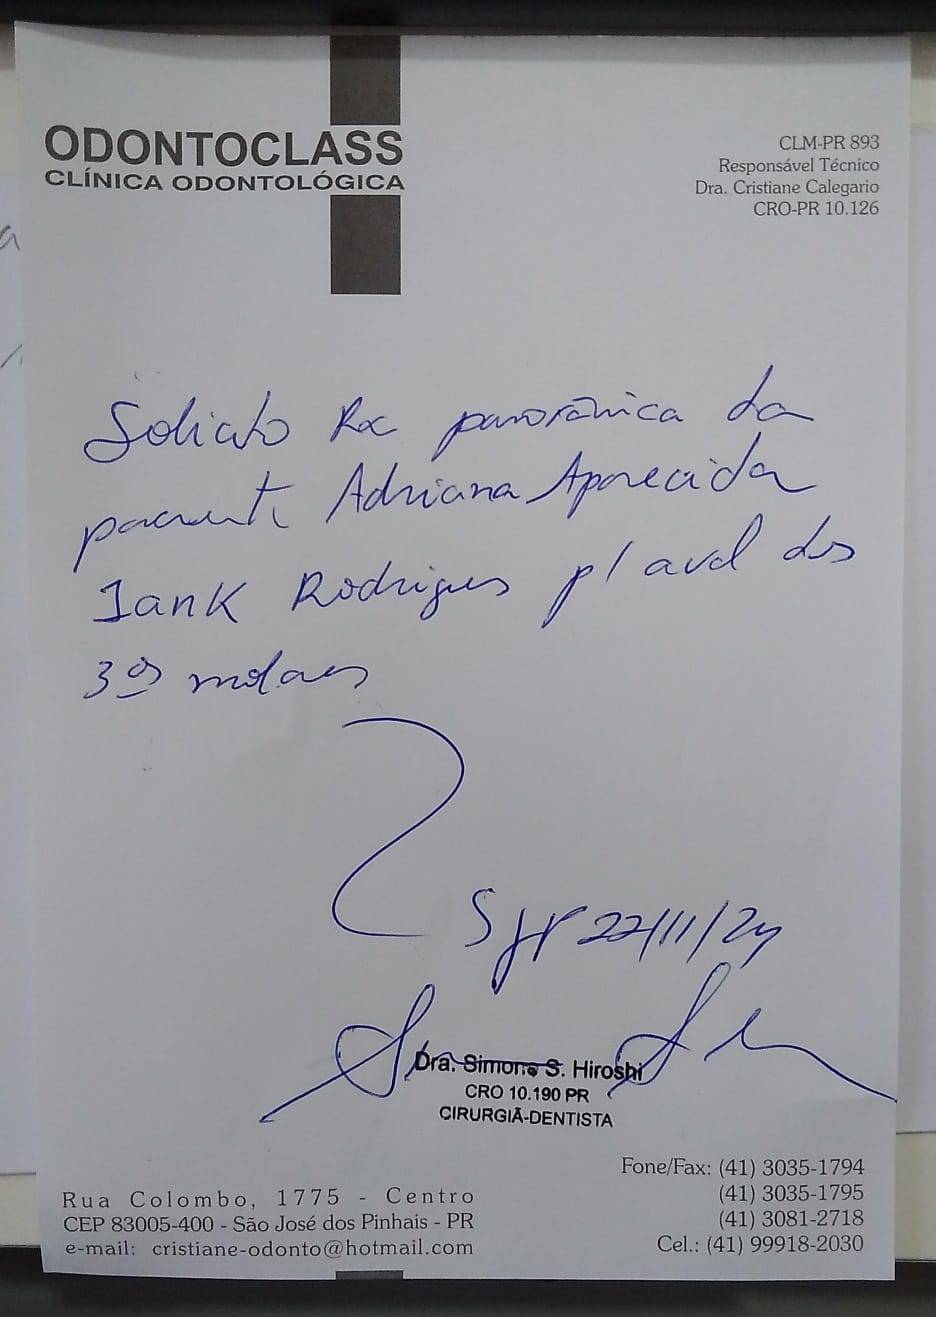 ODONTOCLASS
CLÍNICA ODONTOLÓGICA
CLM-PR 893
Responsável Técnico
Dra. Cristiane Calegario
CRO-PR 10.126
Solicito Rx panorâmica da
paciente Adriana Aparecida
Iank Rodrigues p/ aval dos
3os molares
SJP 22/11/24
Dra. Simone S. Hiroshi
CRO 10.190 PR
CIRURGIÃ-DENTISTA
Rua Colombo, 1775 - Centro
CEP 83005-400 - São José dos Pinhais - PR
e-mail: cristiane-odonto@hotmail.com
Fone/Fax: (41) 3035-1794
(41) 3035-1795
(41) 3081-2718
Cel.: (41) 99918-2030